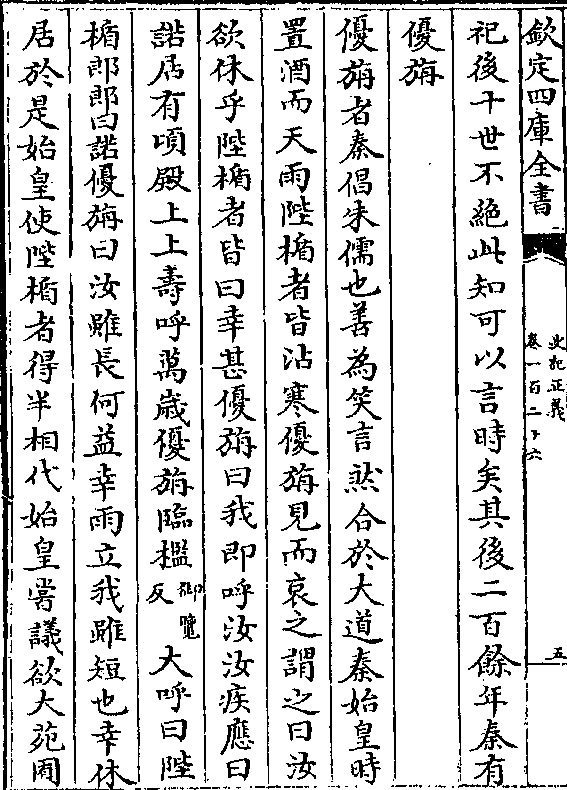 欽定四庫全書
史記正義
卷一百二十六
五
祀後十世不絶此知可以言時矣其後二百餘年秦有
優旃
優旃者秦倡朱儒也善為笑言然合於大道秦始皇時
置酒而天雨陛楯者皆沾寒優旃見而哀之謂之曰汝
欲休乎陛楯者皆曰幸甚優旃曰我即呼汝汝疾應曰
諾居有頃殿上上壽呼萬歲優旃臨檻
覽
反
大呼曰陛
楯郎郎曰諾優旃曰汝雖長何益幸雨立我雖短也幸休
居於是始皇使陛楯者得半相代始皇嘗議欲大苑囿